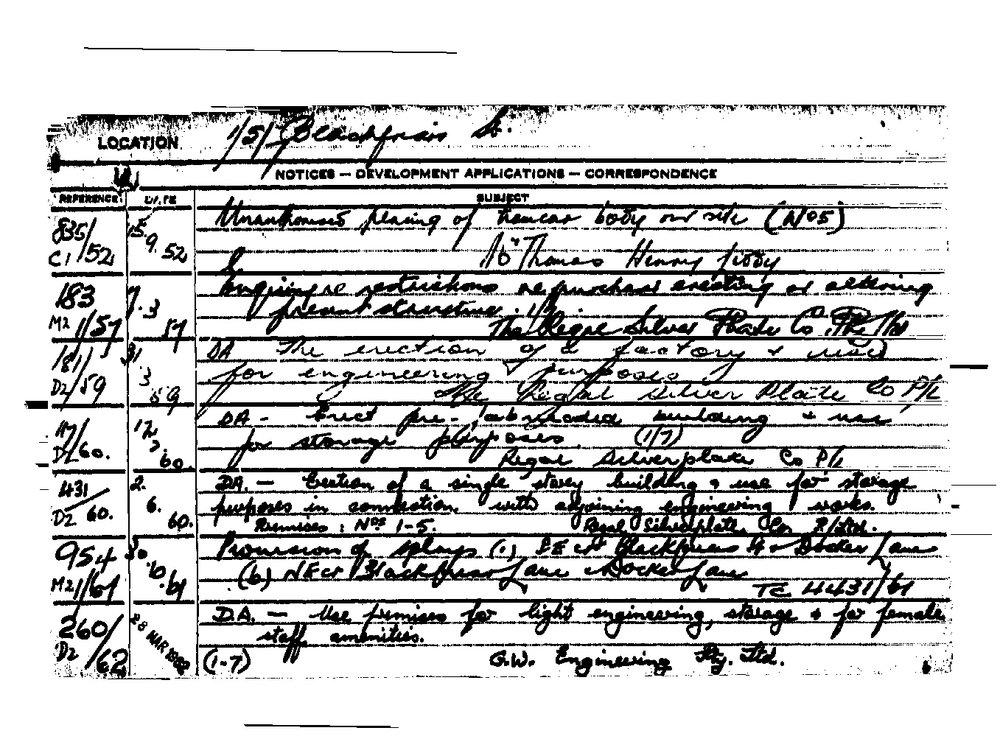 LOCATION 1/5/ Blackfriars St.
NOTICES — DEVELOPMENT APPLICATIONS — CORRESPONDENCE
REFERENCE DATE SUBJECT
835/52 C1 15.9.52 Unauthorised placing of tramcar body on site (No 5)
Thomas Henry
183 M2 1/57 7.3.57 Enquiry re restrictions re purchase erecting or altering
present structure. 1/7
The Regal Silver Plate Co Pty Ltd
181/59 D2 31.3.59 DA The erection of a factory & used
for engineering purposes
The Regal Silver Plate Co P/L
117/60. D2 17. 60. DA - Erect pre-fabricated building & use
for storage purposes. (1/7)
Regal Silverplate Co P/L
431/60. D2 2.6.60. DA. — Erection of a single storey building & use for storage
purposes in connection with adjoining engineering works.
Premises : Nos 1-5. Regal Silverplate Co. P/Ltd.
954 M2 1/61 30.10.61 Provision of splays (a) SE cr Blackfriars St & Docker Lane
(b) NE cr Blackfriars Lane & Docker Lane
TC 4431/61
260/62 D2 28 MAR 1962 D.A. — Use premises for light engineering, storage & for female
staff amenities.
(1-7) G.W. Engineering Pty. Ltd.